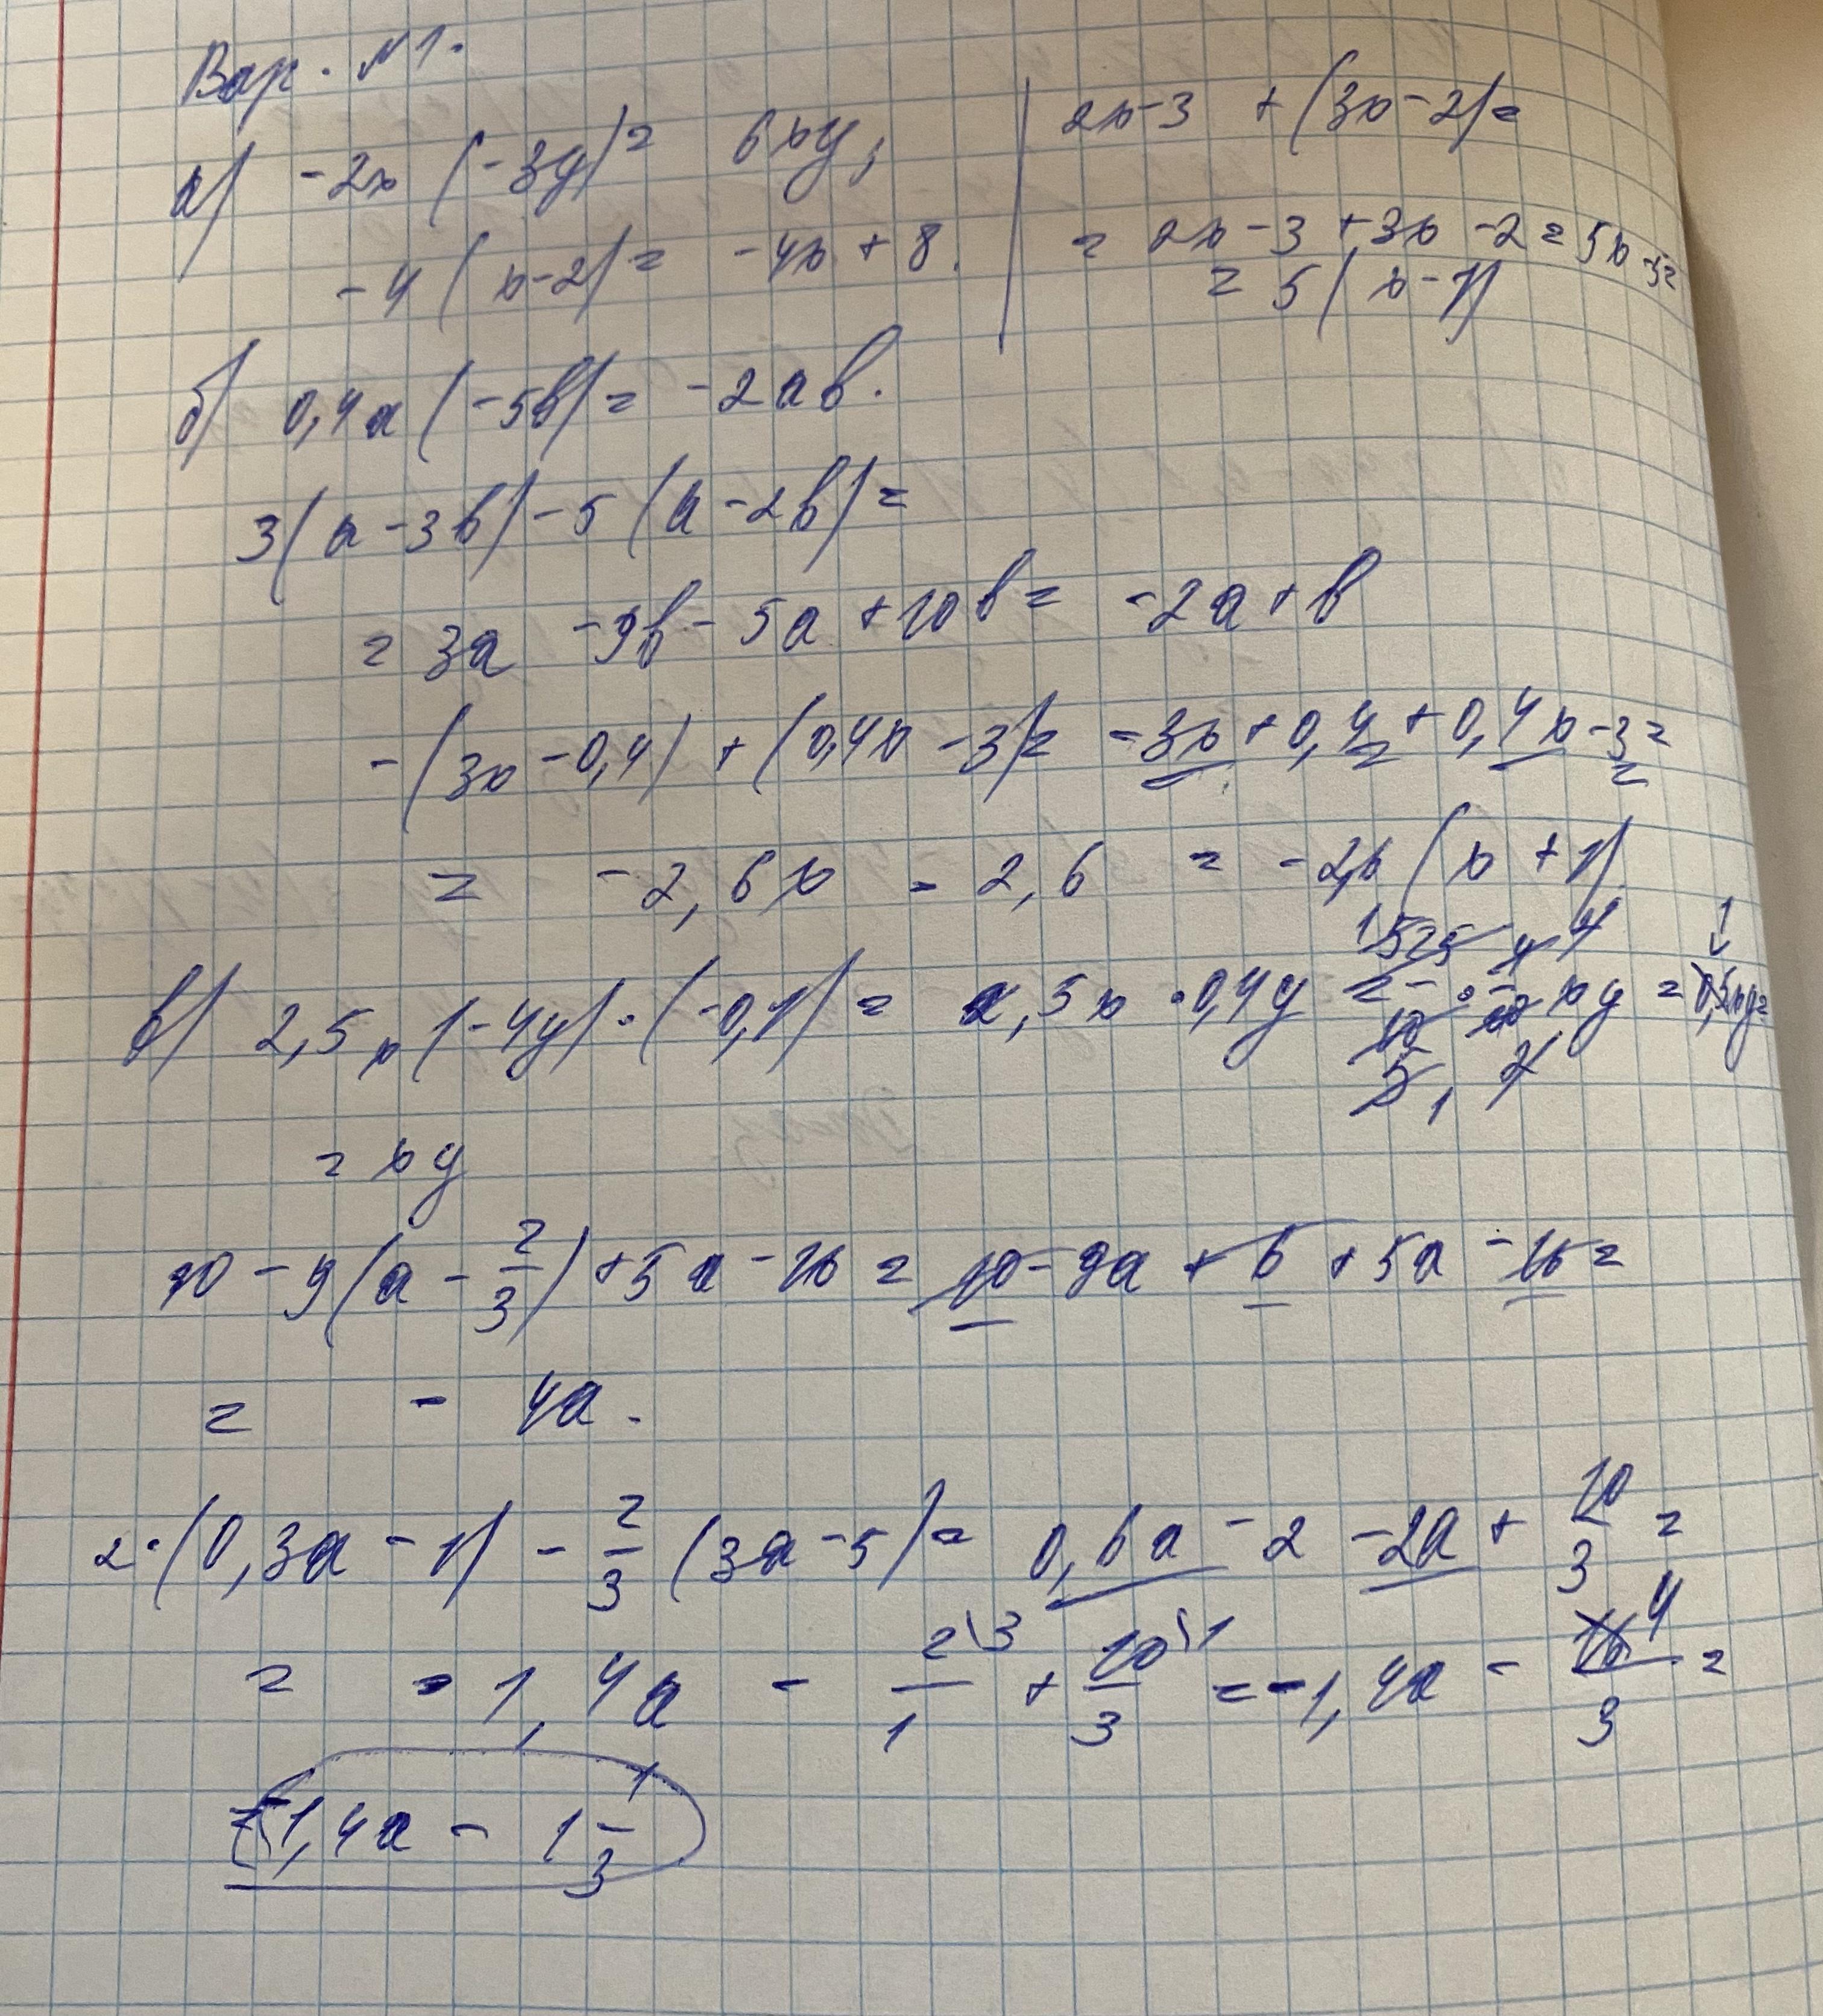 Вар. №1.
а) -2x (-3y) = 6xy;
-4 (x-2) = -4x + 8.
2x-3 + (3x-2) =
= 2x-3 + 3x -2 = 5x-5 =
= 5(x-1)
б) 0,4a (-5b) = -2ab.
3(a-3b) - 5(a-2b) =
= 3a -9b - 5a +10b = -2a+b
-(3x-0,4) + (0,4x-3) = -3x+0,4+0,4x-3 =
= -2,6x - 2,6 = -2,6 (x+1)
в) 2,5x (-4y)·(-0,1) = 2,5x·0,4y = xy =
= xy
10 - 9(a - 2/3) + 5a - 16 = 10 - 9a + 6 + 5a - 16 =
= - 4a.
2·(0,3a - 1) - 2/3 (3a-5) = 0,6a - 2 - 2a + 10/3 =
= -1,4a - 2\3/1 + 10\1/3 = -1,4a - 4/3 =
= -1,4a - 1 1/3